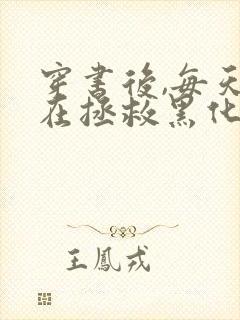 穿書後,每天
在拯救黑化
王鳳戎